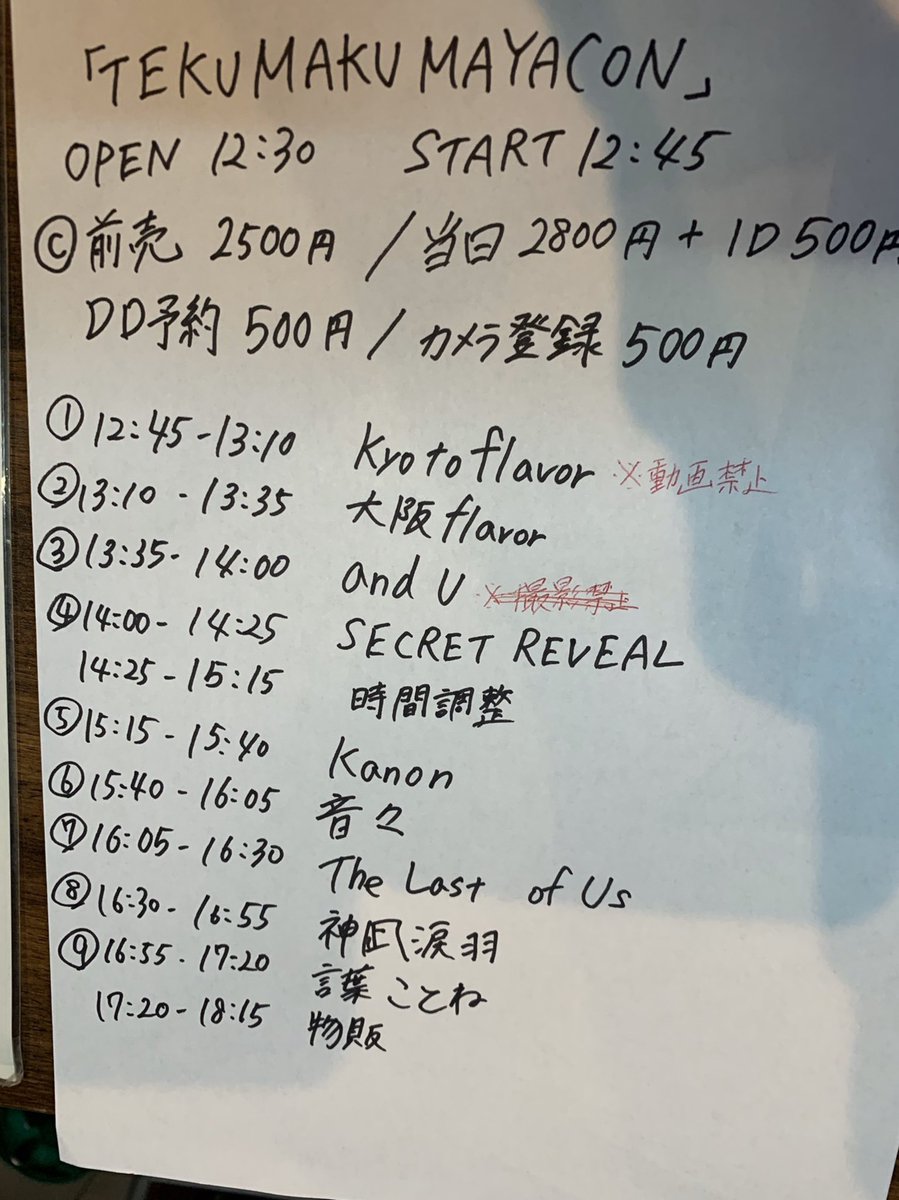 「TEKUMAKUMAYACON」
OPEN 12:30 START 12:45
Ⓒ前売 2500円 / 当日 2800円 + 1D 500円
DD予約 500円 / カメラ登録 500円
① 12:45-13:10 Kyoto flavor ※動画禁止
② 13:10-13:35 大阪 flavor
③ 13:35-14:00 and U ※撮影禁止
④ 14:00-14:25 SECRET REVEAL
14:25-15:15 時間調整
⑤ 15:15-15:40 Kanon
⑥ 15:40-16:05 音々
⑦ 16:05-16:30 The Last of Us
⑧ 16:30-16:55 神凪涙羽
⑨ 16:55-17:20 言葉ことね
17:20-18:15 物販